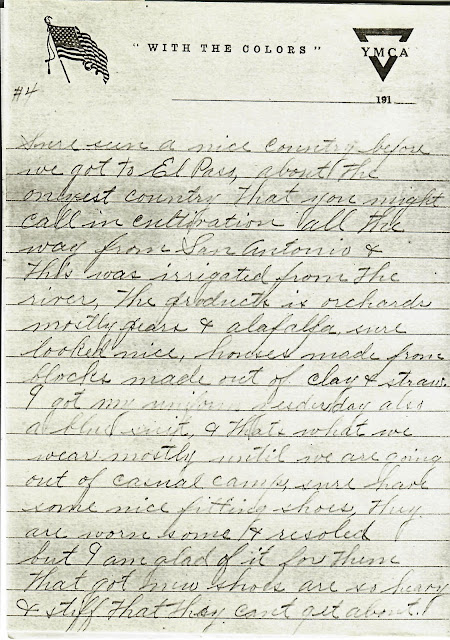 "WITH THE COLORS"
YMCA
#4
191
Sure seen a nice country before
we got to El Paso, about the
onlyest country that you might
call in cultivation all the
way from San Antonio &
this was irrigated from the
river, the products is orchards
mostly pears & alafalfa, sure
looked nice, houses made from
blocks made out of clay & straw.
I got my uniform yesterday also
a blue suit, & thats what we
wear mostly until we are going
out of casual camp, sure have
some nice fitting shoes, they
are worn some & resoled
but I am glad of it for them
that got new shoes are so heavy
& stiff that they cant get about.